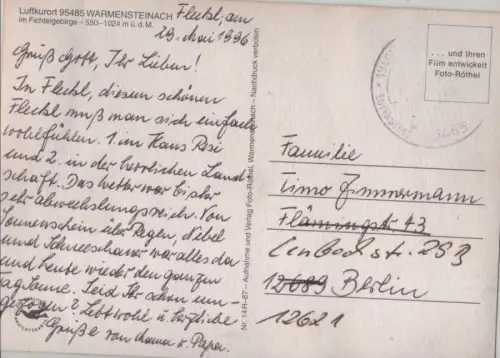 Luftkurort 95485 WARMENSTEINACH
im Fichtelgebirge – 550–1024 m ü. d. M.
Fleckl, am
29. Mai 1996
Grüß Gott, Ihr Lieben!
In Fleckl, diesem schönen
Fleckl muß man sich einfach
wohlfühlen. 1. im Haus Resi
und 2. in der herrlichen Land-
schaft. Das Wetter war bisher
sehr abwechslungsreich. Von
Sonnenschein über Regen, Nebel
und Schneeschauer war alles da
und heute wieder den ganzen
Tag Sonne. Seid Ihr schon um-
gezogen? Lebt wohl u. herzliche
Grüße von Mama u. Papa.
Nr. 14R-87 – Aufnahme und Verlag Foto-Röthel, Warmensteinach – Nachdruck verboten
... und Ihren
Film entwickelt
Foto-Röthel
Familie
Timo Zimmermann
Flämingstr. 43
Lenbachstr. 253
12689 Berlin
12621